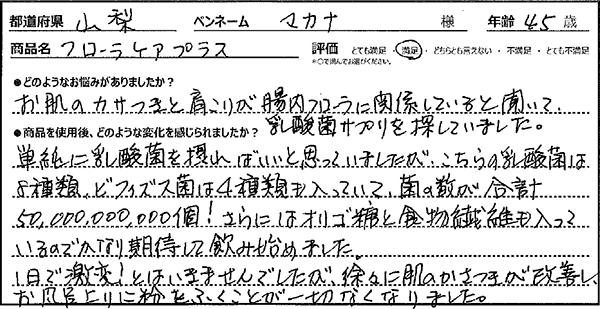 都道府県 山梨 ペンネーム マカナ 様 年齢 45 歳
商品名 フローラケアプラス 評価 とても満足 ・ 満足 ・ どちらとも言えない ・ 不満足 ・ とても不満足
*○で囲んでお選びください。
●どのようなお悩みがありましたか？
お肌のカサつきと肩こりが腸内フローラに関係していると聞いて、
乳酸菌サプリを探していました。
●商品を使用後、どのような変化を感じられましたか？
単純に乳酸菌を摂ればいいと思っていましたが、こちらの乳酸菌は
8種類、ビフィズス菌は4種類も入っていて、菌の数が合計
50,000,000,000個！さらにはオリゴ糖と食物繊維も入って
いるのでかなり期待して飲み始めました。
1日で激変！とはいきませんでしたが、徐々に肌のかさつきが改善し、
お風呂上りに粉をふくことが一切なくなりました。